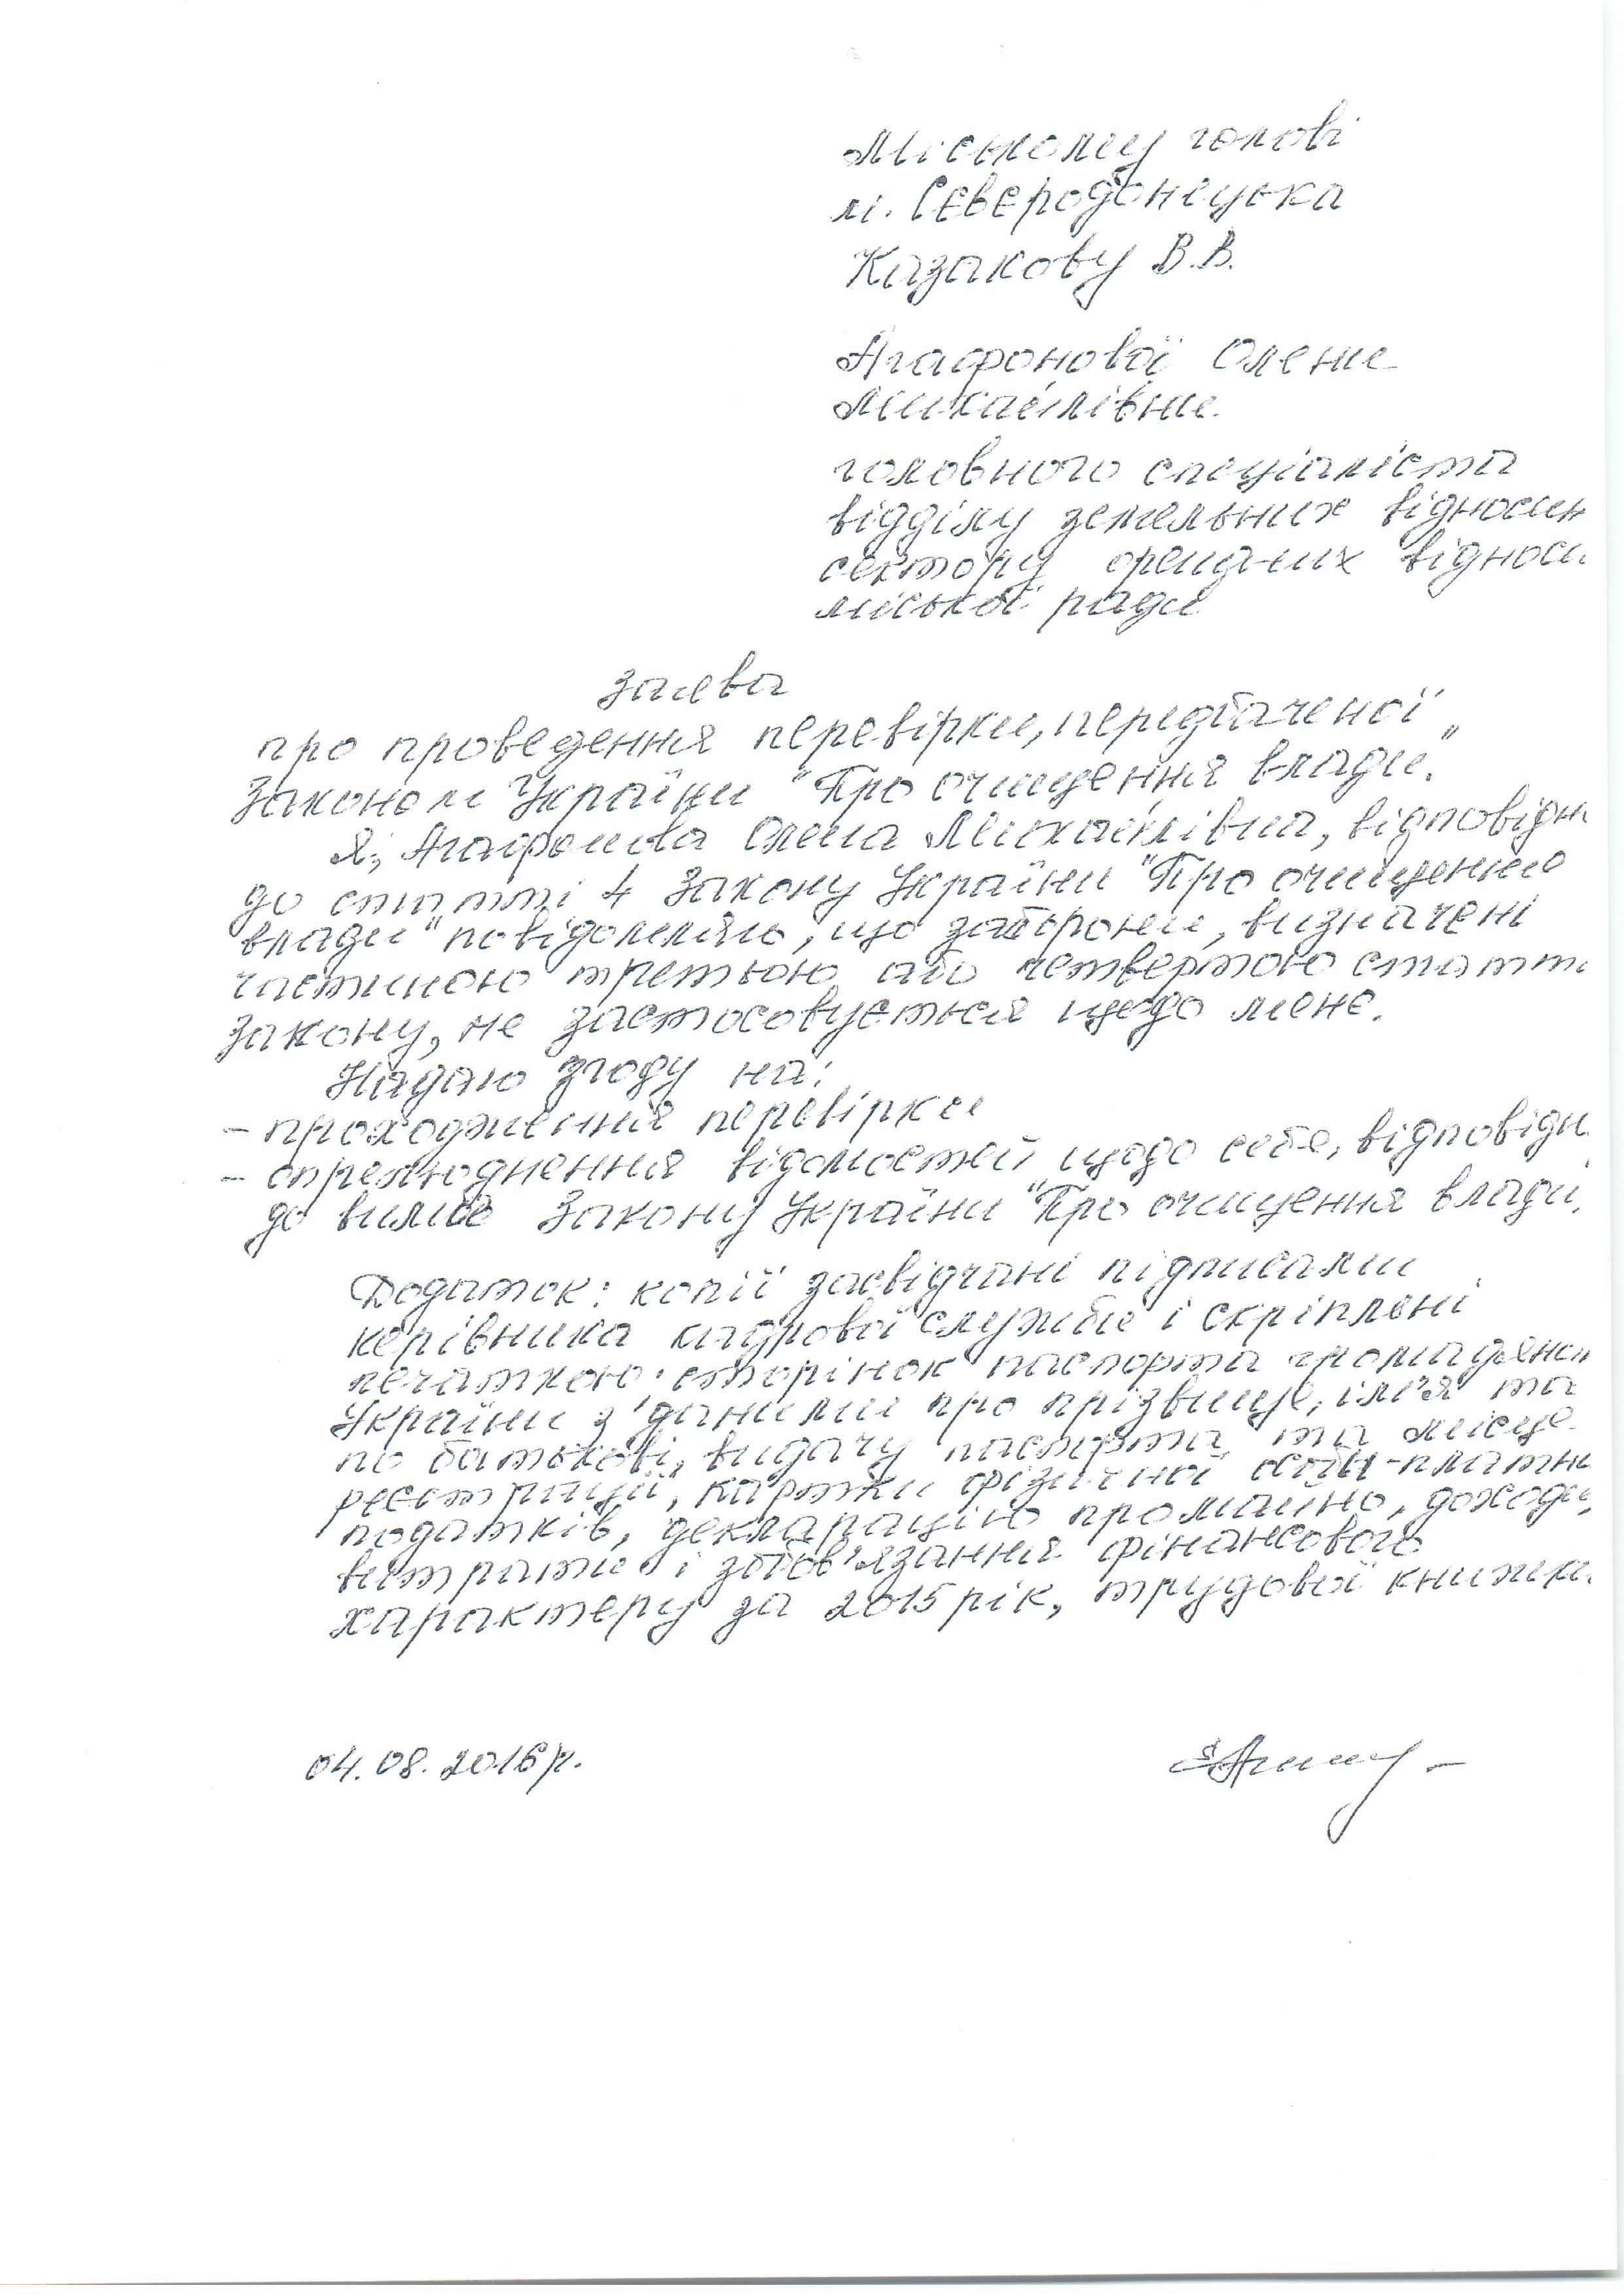 Міському голові
м. Сєвєродонецька
Казакову В.В.
Агафонової Олени
Михайлівни.
головного спеціаліста
відділу земельних відносин
сектору орендних відноси
міської ради
Заява
про проведення перевірки, передбаченої
Законом України "Про очищення влади".
Я, Агафонова Олена Михайлівна, відповідн
до статті 4 Закону України "Про очищення
влади" повідомляю, що заборони, визначені
частиною третьою або четвертою статті
Закону, не застосовується щодо мене.
Надаю згоду на:
- проходження перевірки
- оприлюднення відомостей щодо себе, відповідн
до вимог Закону України "Про очищення влади
Додаток: копії засвідчані підписами
керівника кадрової служби і скріплені
печаткою: сторінок паспорта громадянин
України з даними про прізвище, ім'я та
по батькові, видачу паспорта та місце
реєстрації, картки фізичної особи-платни
податків, декларацію про майно, доходи,
витрати і зобов'язання фінансового
характеру за 2015 рік, трудової книжки.
04.08.2016р.